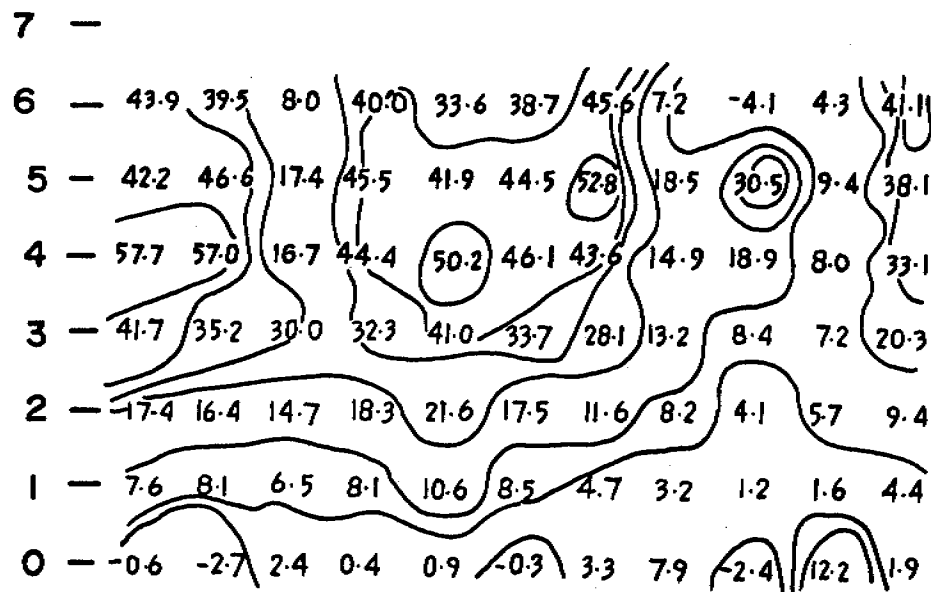 7 —
6 — 43.9 39.5 8.0 40.0 33.6 38.7 45.6 7.2 -4.1 4.3 41.1
5 — 42.2 46.6 17.4 45.5 41.9 44.5 52.8 18.5 30.5 9.4 38.1
4 — 57.7 57.0 16.7 44.4 50.2 46.1 43.6 14.9 18.9 8.0 33.1
3 — 41.7 35.2 30.0 32.3 41.0 33.7 28.1 13.2 8.4 7.2 20.3
2 — 17.4 16.4 14.7 18.3 21.6 17.5 11.6 8.2 4.1 5.7 9.4
1 — 7.6 8.1 6.5 8.1 10.6 8.5 4.7 3.2 1.2 1.6 4.4
0 — -0.6 -2.7 2.4 0.4 0.9 -0.3 3.3 7.9 -2.4 12.2 1.9